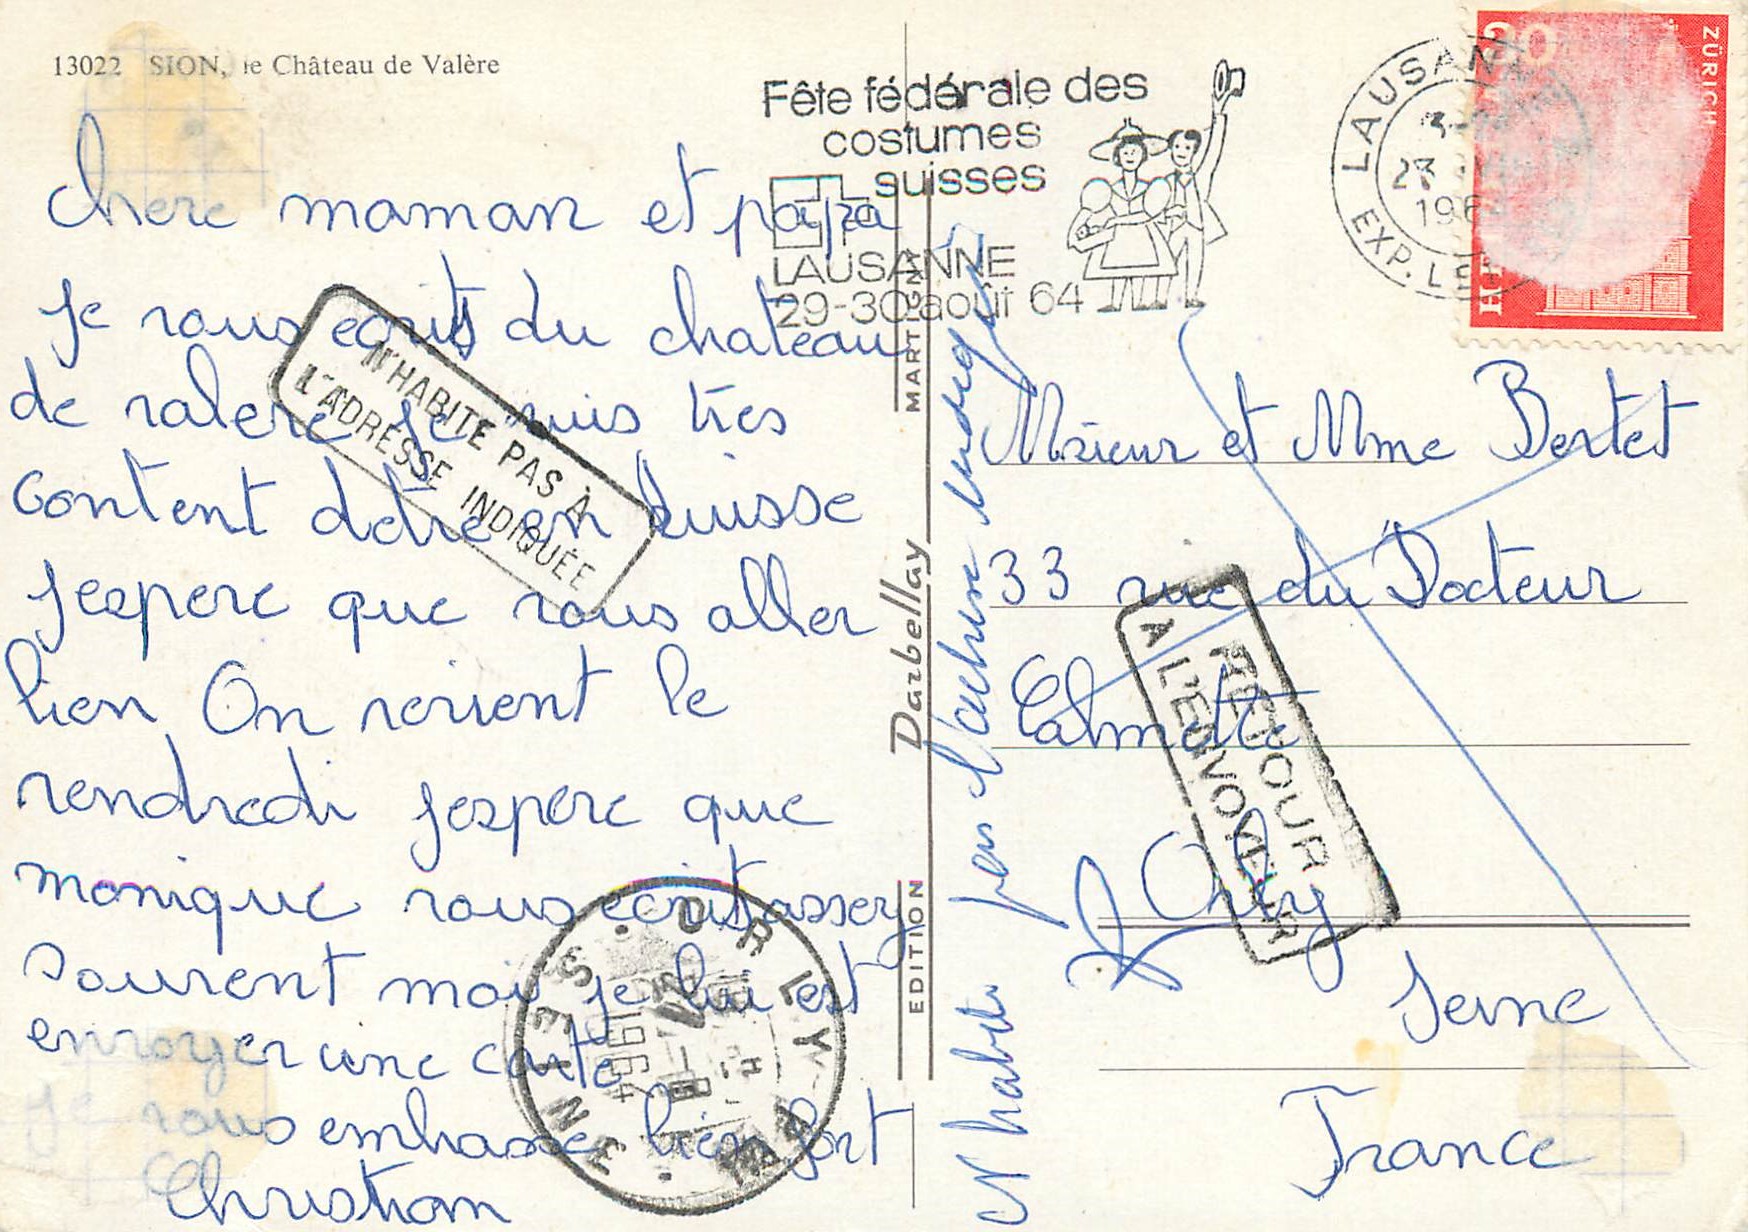 13022 SION, le Château de Valère
chere maman et papa
Je vous écrits du chateau
de valere Je suis très
content detre en Suisse
Jespere que vous aller
bien On revient le
vendredi jespere que
monique vous ecrit assez
souvent moi je lui est
envoyer une carte
je vous embrasse bien fort
Christian
N'HABITE PAS À
L'ADRESSE INDIQUÉE
Fête fédérale des
costumes
suisses
LAUSANNE
29-30 août 64
LAUSANNE
EXP. LET
HELVETIA
30
ZÜRICH
EDITION Darbellay MARTIGNY
N'habite pas l'adresse indiquée
Msieur et Mme Bertet
33 rue du Docteur
Calmette
Orly
Seine
France
RETOUR
A L'ENVOYEUR
ORLY
SEINE
1964